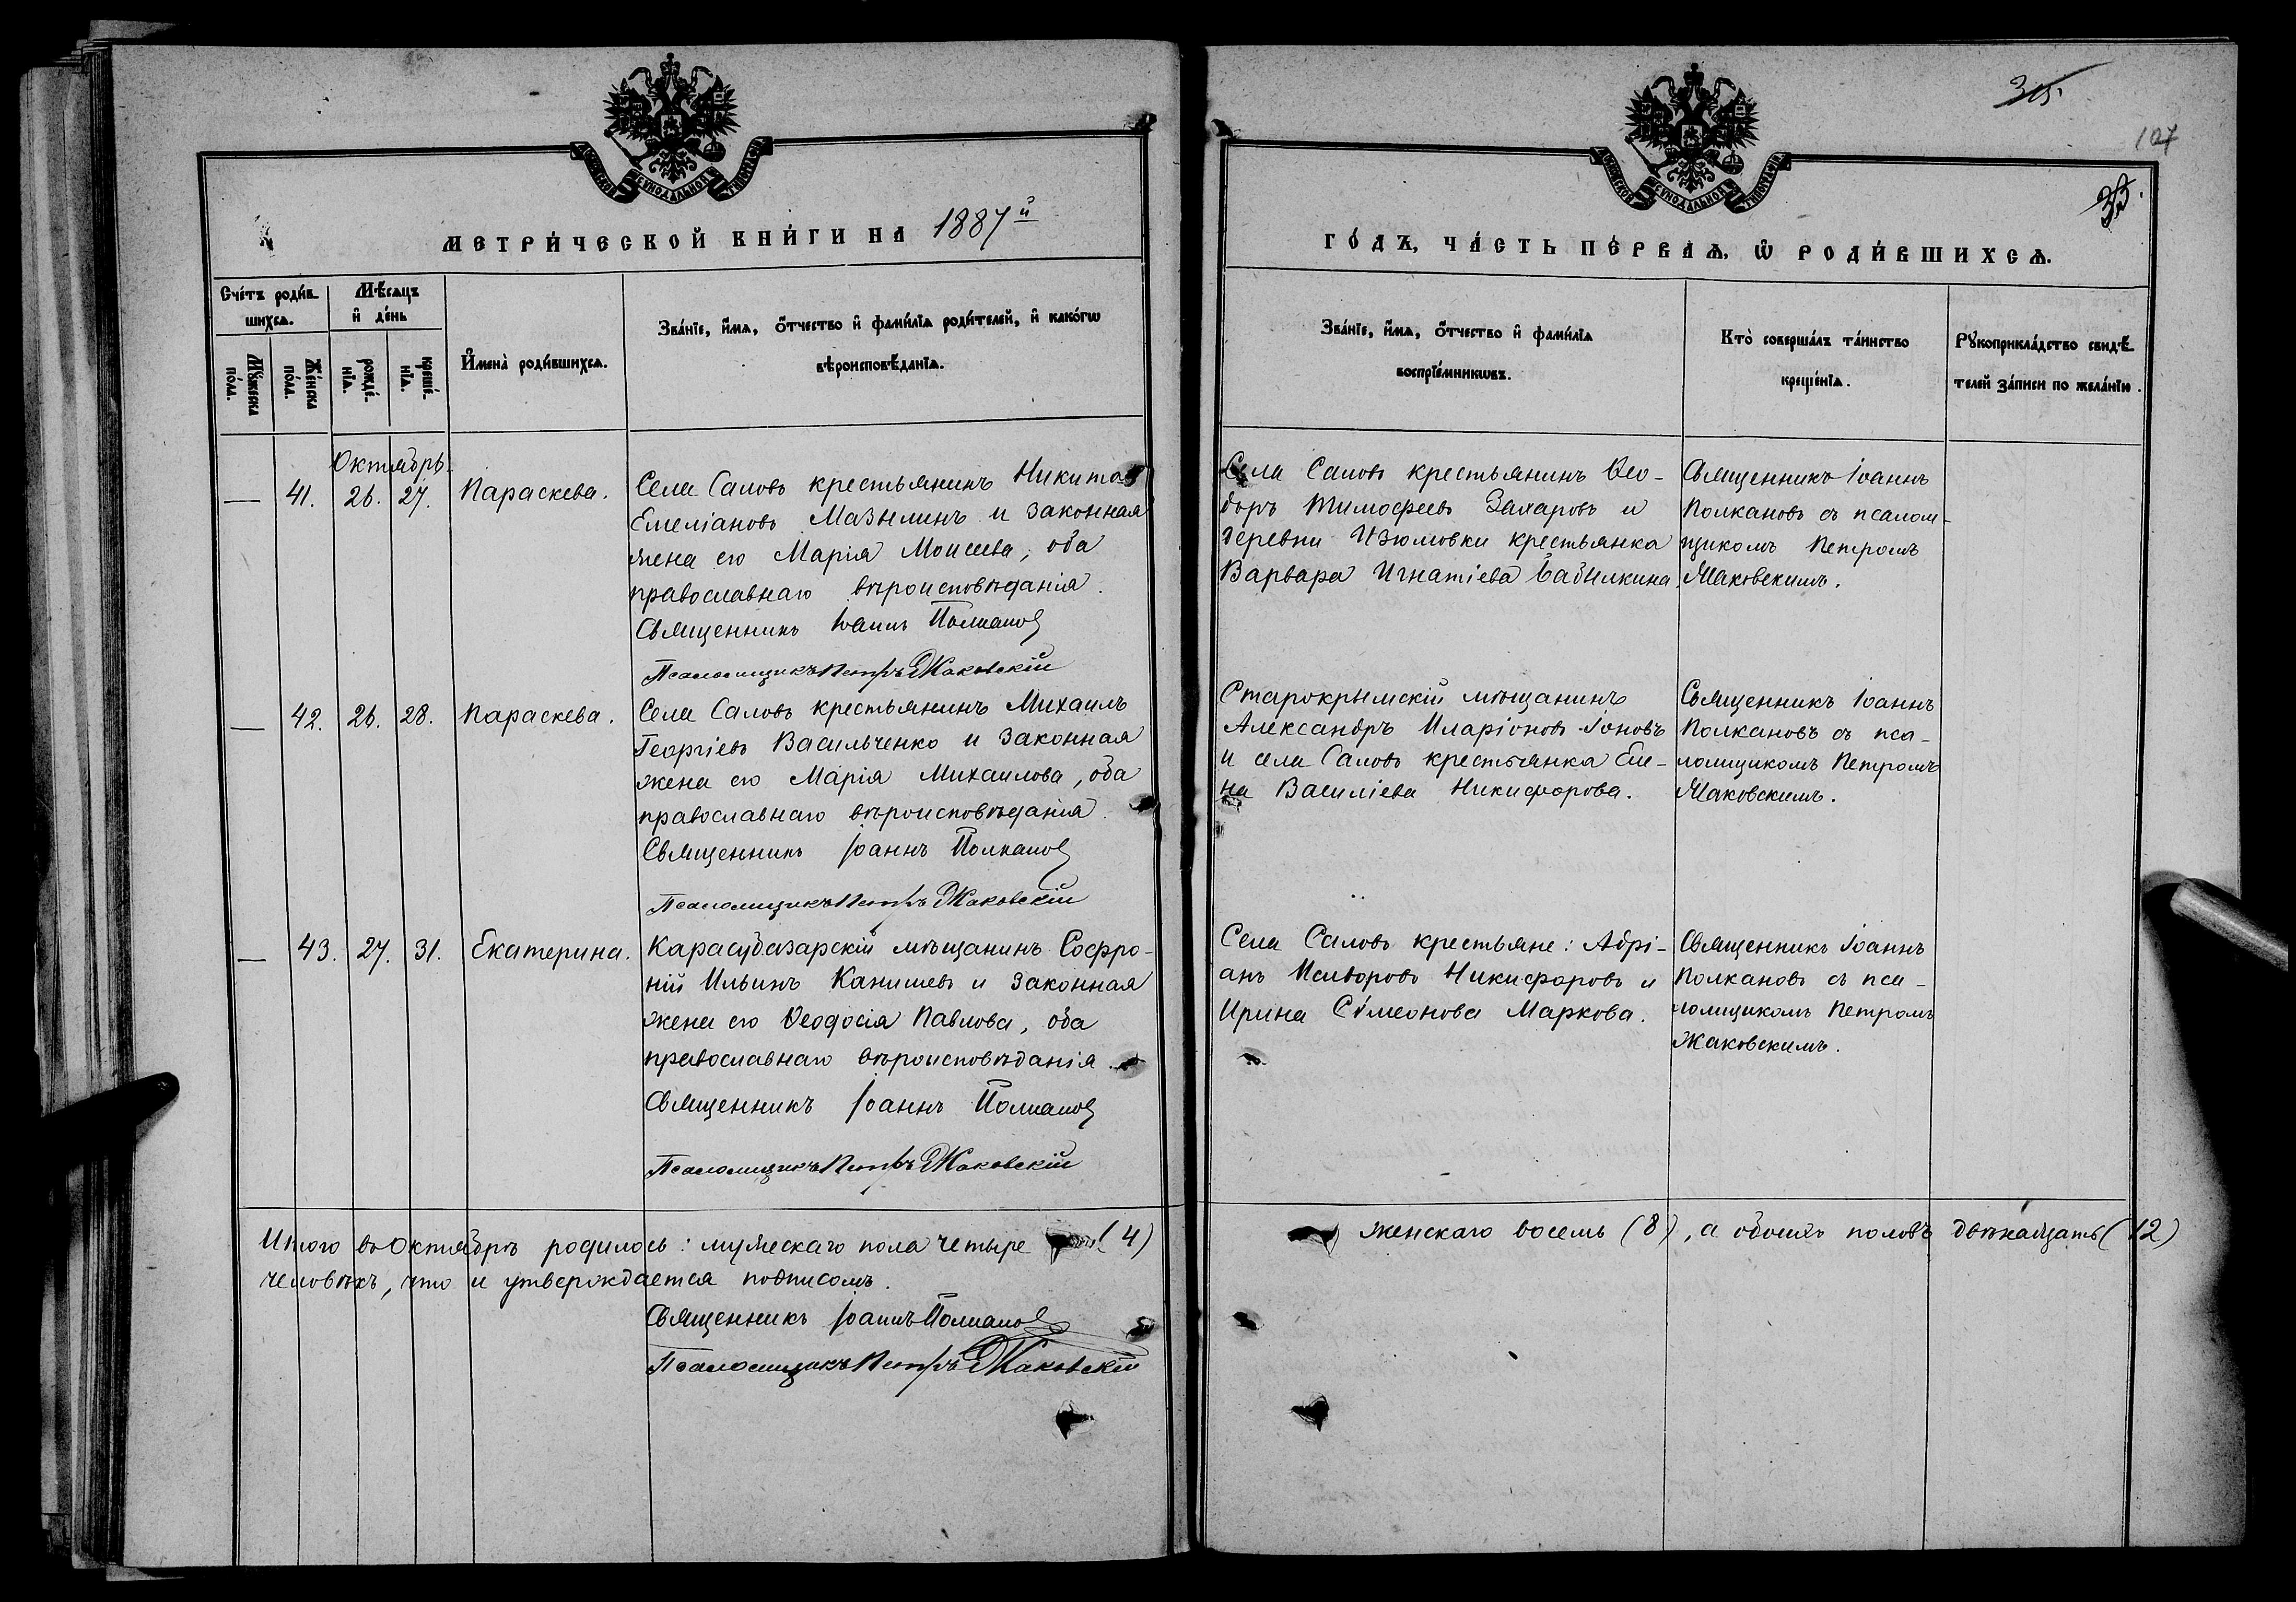 МОСКОВСКОЙ СУНОДАЛЬНОЙ ТИПОГРАФІИ
МЕТРИ́ЧЕСКОЙ КНИ́ГИ НА 1887й
Сче́тъ роди́в-
шихсѧ.
Мѣ́сѧцъ
и҆ де́нь
Мꙋ́жеска
по́ла.
Же́нска
по́ла.
рожде́-
нїѧ.
креще́-
нїѧ.
И҆мена̀ роди́вшихсѧ.
Зва́нїе, и҆́мѧ, ѻ҆́тчество и҆ фами́лїѧ роди́телей, и҆ како́гѡ
вѣроисповѣ́данїѧ.
Октябрь.
— 41. 26. 27. Параскева.
Села Саловъ крестьянинъ Никита
Емеліановъ Мазылинъ и законная
жена его Марія Моисеева, оба
православнаго вѣроисповѣданія.
Священникъ Іоаннъ Полкановъ
Псаломщикъ Петръ Жаковскій
— 42. 26. 28. Параскева.
Села Саловъ крестьянинъ Михаилъ
Георгіевъ Васильченко и законная
жена его Марія Михаилова, оба
православнаго вѣроисповѣданія.
Священникъ Іоаннъ Полкановъ
Псаломщикъ Петръ Жаковскій
— 43. 27. 31. Екатерина.
Карасубазарскій мѣщанинъ Софро-
ній Ильинъ Канишевъ и законная
жена его Ѳеодосія Павлова, оба
православнаго вѣроисповѣданія.
Священникъ Іоаннъ Полкановъ
Псаломщикъ Петръ Жаковскій
Итого въ Октябрѣ родилось: мужескаго пола четыре (4)
человѣкъ, что и утверждается подписомъ.
Священникъ Іоаннъ Полкановъ
Псаломщикъ Петръ Жаковскій
35.
107
МОСКОВСКОЙ СУНОДАЛЬНОЙ ТИПОГРАФІИ
ГО́ДЪ, ЧА́СТЬ ПЕ́РВАѦ, Ѡ҆ РОДИ́ВШИХСѦ.
Зва́нїе, и҆́мѧ, ѻ҆́тчество и҆ фами́лїѧ
воспрїе́мникѡвъ.
Кто̀ соверша́лъ та́инство
креще́нїѧ.
Рꙋкоприкла́дство свидѣ́-
телей за́писи по жела́нїю.
Села Саловъ крестьянинъ Ѳео-
доръ Тимофеевъ Захаровъ и
деревни Изюмовки крестьянка
Варвара Игнатіева Бабылкина.
Священникъ Іоаннъ
Полкановъ съ псалом-
щикомъ Петромъ
Жаковскимъ.
Старокрымскій мѣщанинъ
Александръ Иларіоновъ Іоновъ
и села Саловъ крестьянка Еле-
на Василіева Никифорова.
Священникъ Іоаннъ
Полкановъ съ пса-
ломщикомъ Петромъ
Жаковскимъ.
Села Саловъ крестьяне: Адрі-
анъ Исидоровъ Никифоровъ и
Ирина Сѵмеонова Маркова.
Священникъ Іоаннъ
Полкановъ съ пса-
ломщикомъ Петромъ
Жаковскимъ.
женскаго восемь (8), а обоихъ половъ двѣнадцать (12)